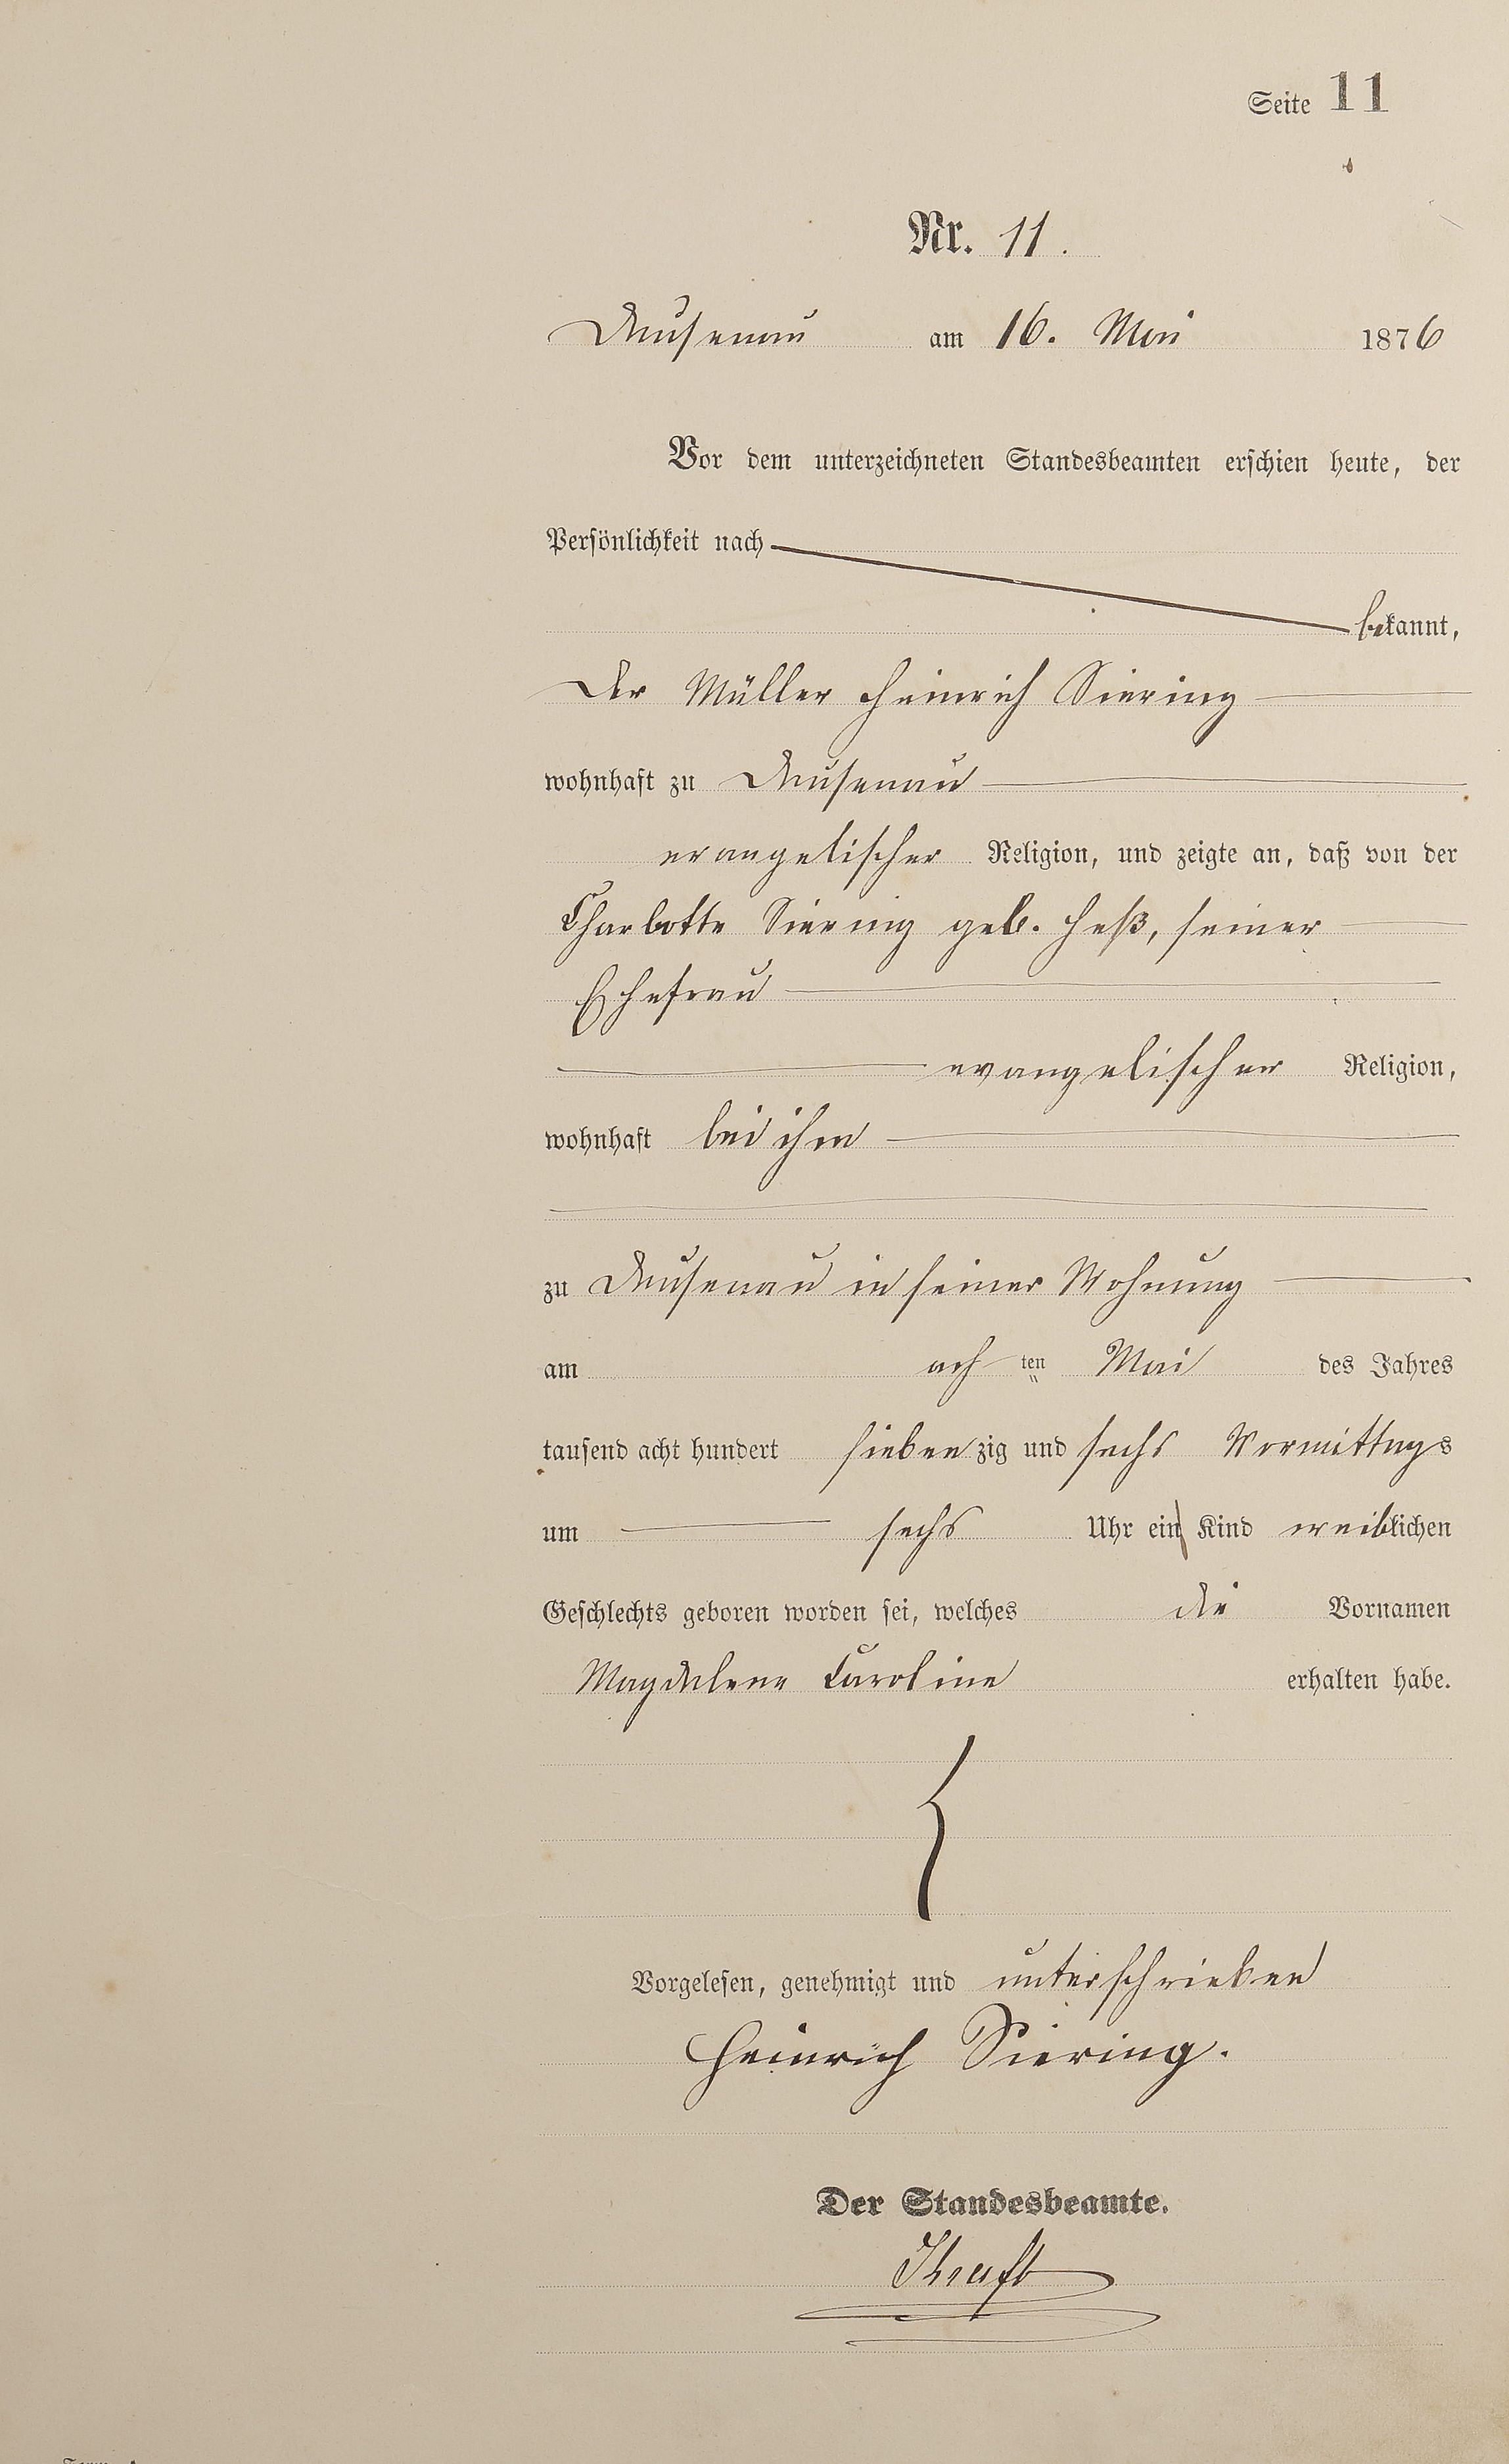 Seite 11
Nr. 11.
Dausenau am 16. Mai 1876
Vor dem unterzeichneten Standesbeamten erschien heute, der
Persönlichkeit nach
bekannt,
der Müller Heinrich Siering
wohnhaft zu Dausenau
evangelischer Religion, und zeigte an, daß von der
Charlotte Siering geb. Heß, seiner
Ehefrau
evangelischer Religion,
wohnhaft bei ihm
zu Dausenau in seiner Wohnung
am ach ten Mai des Jahres
tausend acht hundert sieben zig und sechs Vormittags
um sechs Uhr ein Kind weiblichen
Geschlechts geboren worden sei, welches die Vornamen
Magdalene Caroline erhalten habe.
Vorgelesen, genehmigt und unterschrieben
Heinrich Siering.
Der Standesbeamte.
Kraft